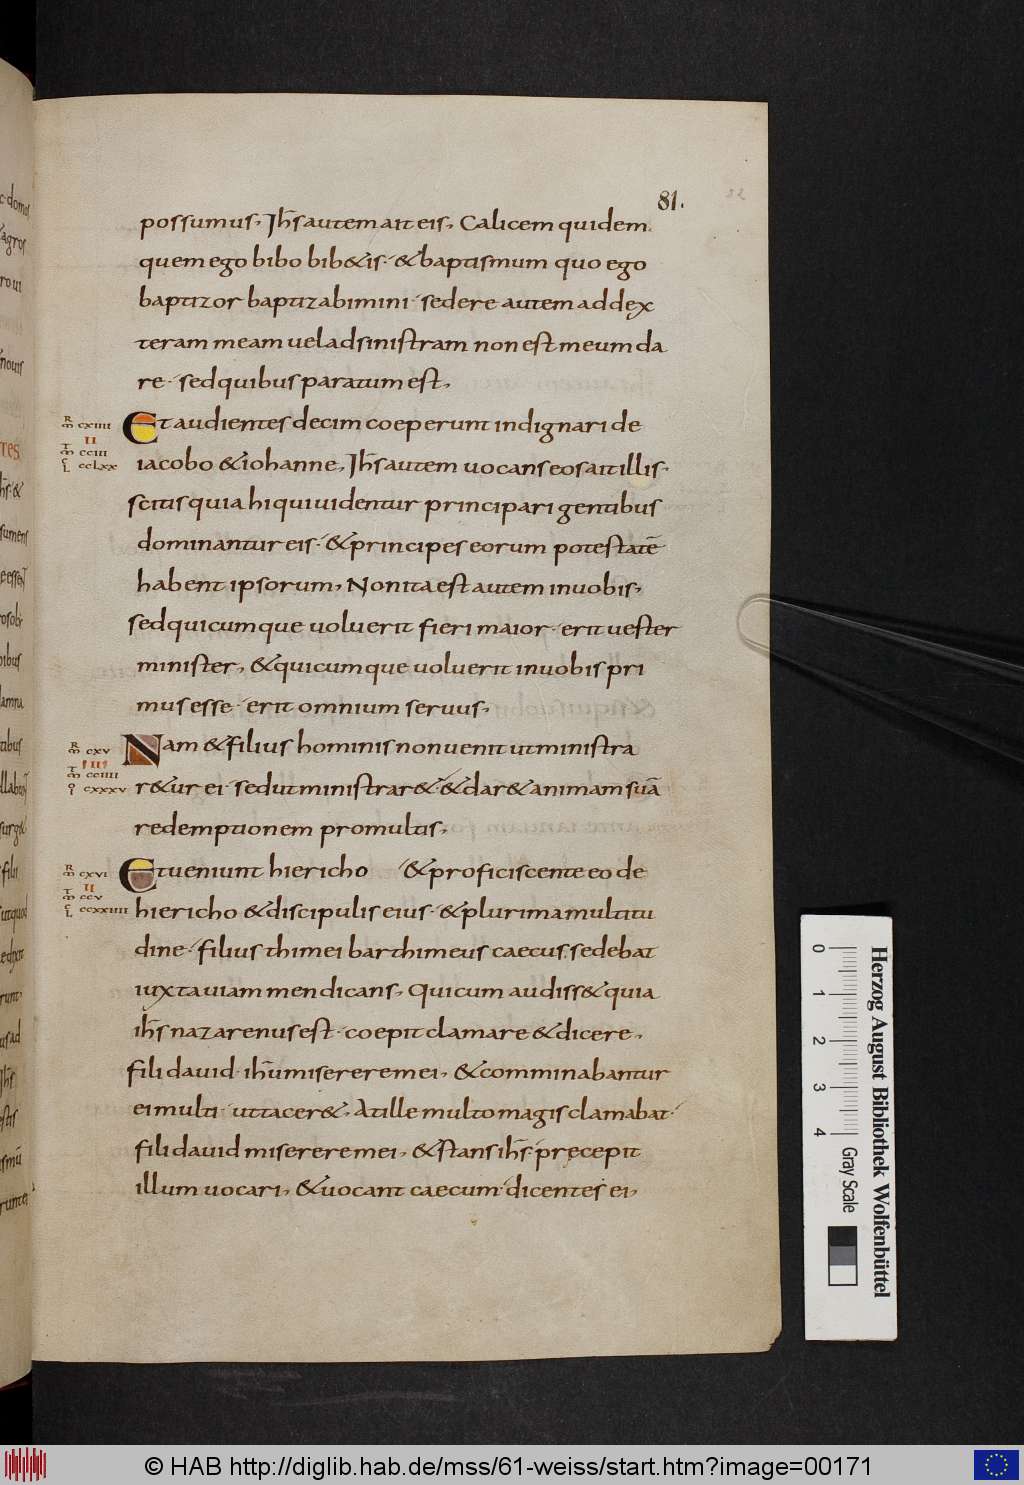 81.
possumus, Ih̄s autem ait eis, Calicem quidem
quem ego bibo bib&is · & baptismum quo ego
baptizor baptizabimini · sedere autem ad dex
teram meam uel ad sinistram non est meum da
re · sed quibus paratum est,
R
m̄ cxiiii
II
T
m̄ cciii
L cclxx
Et audientes decim coeperunt indignari de
iacobo & iohanne, Ih̄s autem uocans eos ait illis ·
scitis quia hi qui uidentur principari gentibus
dominantur eis · & principes eorum potestatē
habent ipsorum, Non ita est autem in uobis,
sed quicumque uoluerit fieri maior · erit uester
minister, & quicumque uoluerit in uobis pri
mus esse · erit omnium seruus,
R
m̄ cxv
III
T
m̄ cciiii
cxxxv
Nam & filius hominis non uenit ut ministra
r&ur ei · sed ut ministrar& · & dar& animam suā
redemptionem pro multis,
R
m̄ cxvi
II
T
m̄ ccv
L ccxxiiii
Et ueniunt hiericho · & proficiscente eo de
hiericho & discipulis eius · & plurima multitu
dine · filius thimei barthimeus caecus, sedebat
iuxta uiam mendicans, Qui cum audiss& quia
ih̄s nazarenus est · coepit clamare & dicere,
fili dauid · ih̄u miserere mei, & comminabantur
ei multi · ut tacer&, At ille multo magis clamabat ·
fili dauid miserere mei, & stans ih̄s · pręcepit
illum uocari, & uocant caecum · dicentes ei,
Herzog August Bibliothek Wolfenbüttel
0 1 2 3 4
Gray Scale
© HAB http://diglib.hab.de/mss/61-weiss/start.htm?image=00171